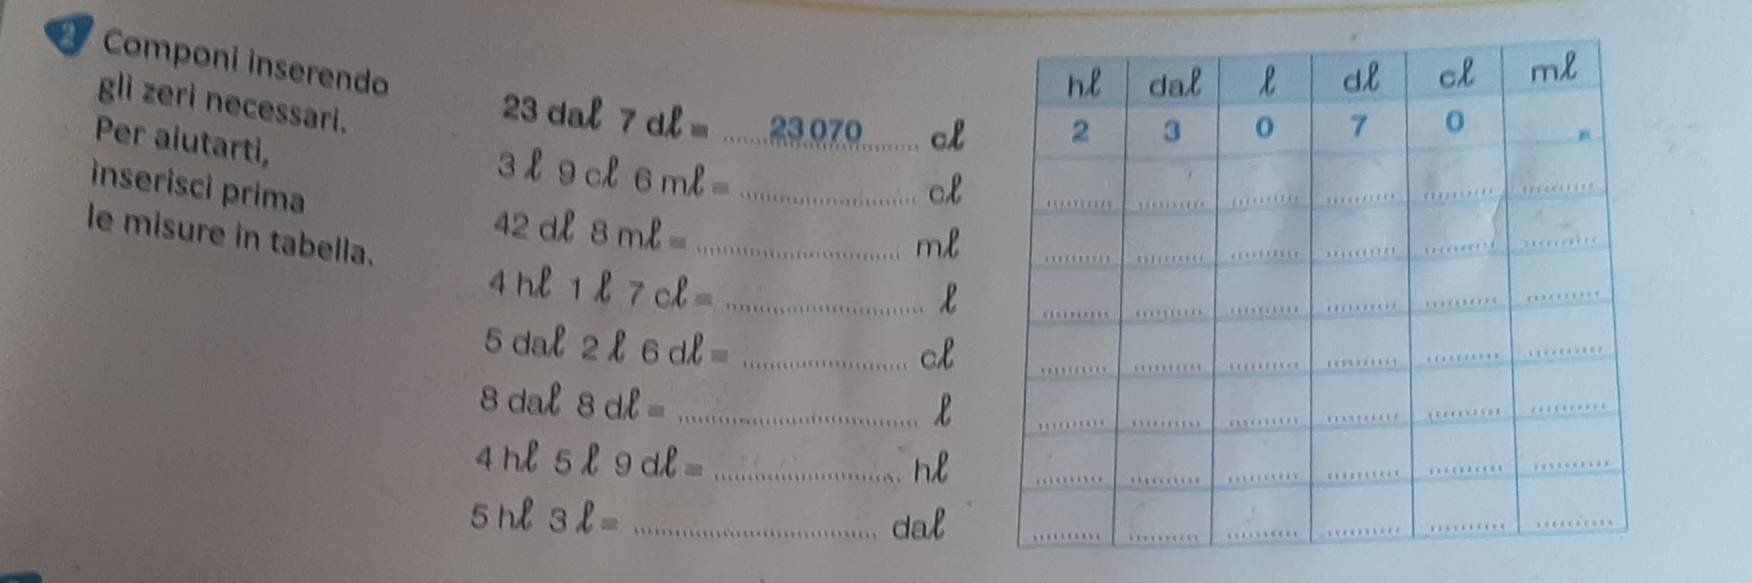 2 Componi inserendo
gli zeri necessari.
Per aiutarti,
inserisci prima
le misure in tabella.
23 daℓ 7 dℓ = ......23 070...... cℓ
3 ℓ 9 cℓ 6 mℓ = ........................ cℓ
42 dℓ 8 mℓ = ........................ mℓ
4 hℓ 1 ℓ 7 cℓ = ........................ ℓ
5 daℓ 2 ℓ 6 dℓ = ........................ cℓ
8 daℓ 8 dℓ = ........................ ℓ
4 hℓ 5 ℓ 9 dℓ = ........................ hℓ
5 hℓ 3 ℓ = ........................ daℓ
hℓ daℓ ℓ dℓ cℓ mℓ
2 3 0 7 0